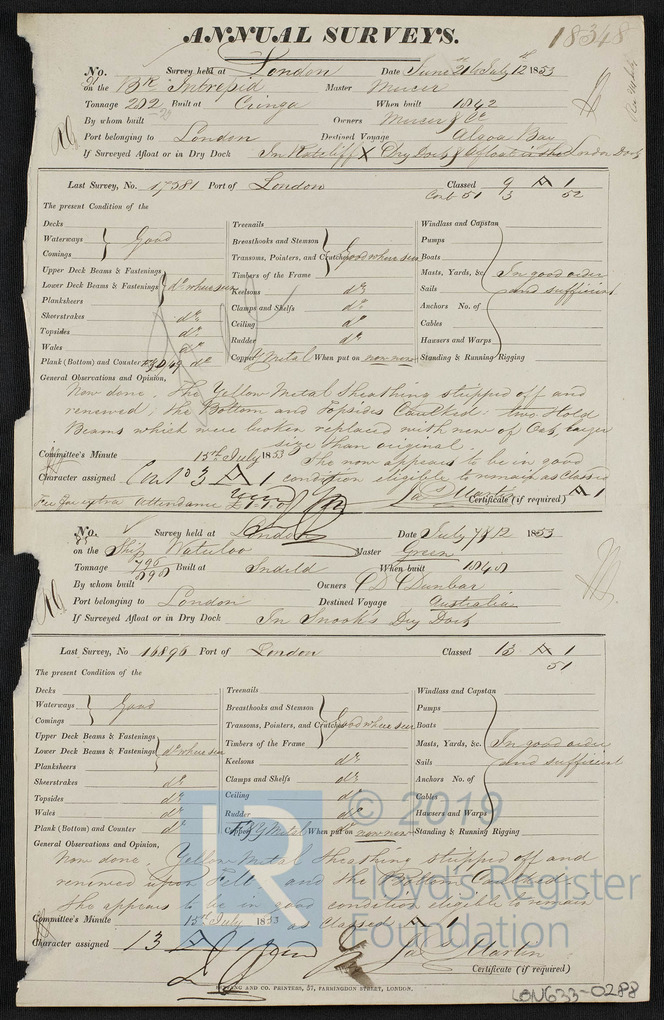 ANNUAL SURVEYS.
18348
No. Survey held at London Date June 21 to July 12 1853
on the Br Intrepid Master Mucer
Tonnage 202 Built at When built 1842
By whom built Owners Mucer & Co
Port belonging to London Destined Voyage Algoa Bay
If Surveyed Afloat or in Dry Dock In Ratcliff X Dry Dock & Afloat in the London Dock
Last Survey, No. 17381 Port of London Classed 9 A 1
Cont 51 3 52
The present Condition of the
Decks Treenails Windlass and Capstan
Waterways Good Breasthooks and Stemson Pumps
Comings Transoms, Pointers, and Crutches Good where seen Boats
Upper Deck Beams & Fastenings Timbers of the Frame Masts, Yards, &c. In good order
Lower Deck Beams & Fastenings do where seen Keelsons do Sails and sufficient
Planksheers Clamps and Shelfs do Anchors No. of
Sheerstrakes do Ceiling do Cables
Topsides do Rudder do Hausers and Warps
Wales do Copper Y Metal When put on now new Standing & Running Rigging
Plank (Bottom) and Counter do
General Observations and Opinion,
Now done, The Yellow Metal Sheathing stripped off and
renewed, the Bottom and Topsides Caulked. two Hold
Beams which were broken replaced with new of Oak, larger
size than original.
Committee's Minute 15th July 1853 She now appears to be in good
Character assigned Contd 3 A 1 condition eligible to remain as Classed
A 1
Fee for extra attendance £1.1.0 Jas Martin Certificate (if required)
No. Survey held at London Date July 7 & 12 1853
on the Ship Waterloo Master Green
Tonnage 796 898 Built at When built 1840
By whom built Owners D Dunbar
Port belonging to London Destined Voyage Australia
If Surveyed Afloat or in Dry Dock In Snook's Dry Dock
Last Survey, No 16896 Port of London Classed 13 A 1
51
The present Condition of the
Decks Treenails Windlass and Capstan
Waterways Good Breasthooks and Stemson Pumps
Comings Transoms, Pointers, and Crutches Good where seen Boats
Upper Deck Beams & Fastenings Timbers of the Frame Masts, Yards, &c. In good order
Lower Deck Beams & Fastenings do where seen Keelsons do Sails and sufficient
Planksheers Clamps and Shelfs do Anchors No. of
Sheerstrakes do Ceiling do Cables
Topsides do Rudder do Hausers and Warps
Wales do Copper F & Y Metal When put on now new Standing & Running Rigging
Plank (Bottom) and Counter do
General Observations and Opinion,
Now done, Yellow Metal Sheathing stripped off and
renewed upon Felt, and the Bottom Caulked.
She appears to be in good condition eligible to remain
Committee's Minute 15th July 1853 as Classed A 1
Character assigned 13 A 1 Jas Martin
Certificate (if required)
AND CO. PRINTERS, 57, FARRINGDON STREET, LONDON.
LON633-0288
© 2019
Lloyd's Register
Foundation